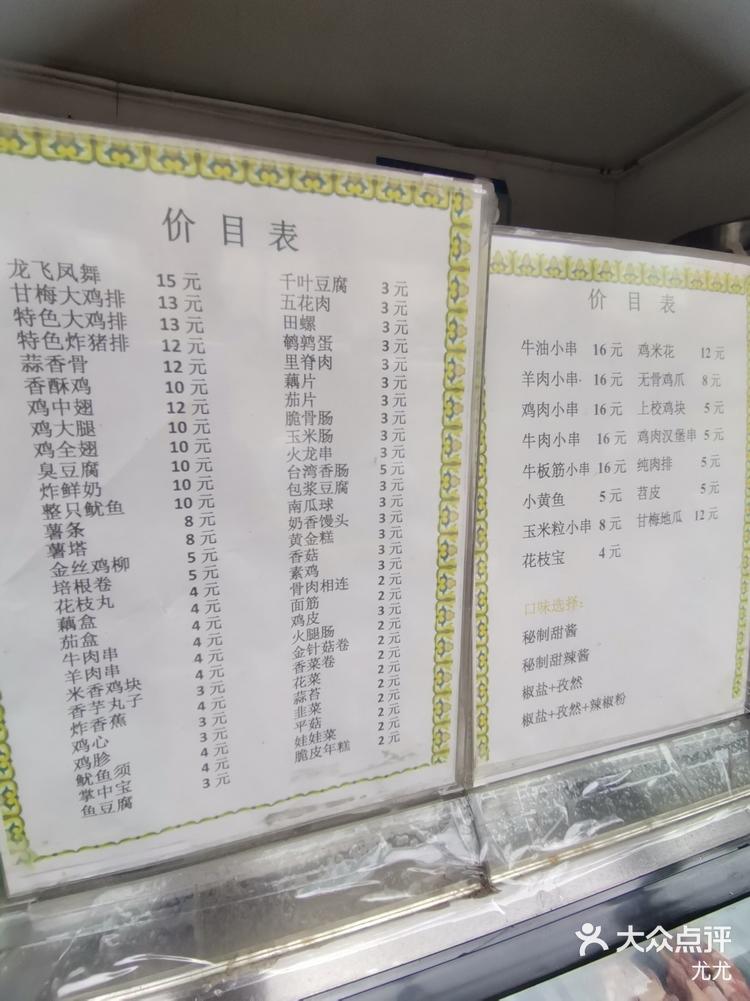 价目表
龙飞凤舞 15元
甘梅大鸡排 13元
特色大鸡排 13元
特色炸猪排 12元
蒜香骨 12元
香酥鸡 10元
鸡中翅 12元
鸡大腿 10元
鸡全翅 10元
臭豆腐 10元
炸鲜奶 10元
整只鱿鱼 10元
薯条 8元
薯塔 8元
金丝鸡柳 5元
培根卷 5元
花枝丸 4元
藕盒 4元
茄盒 4元
牛肉串 4元
羊肉串 4元
米香鸡块 4元
香芋丸子 3元
炸香蕉 4元
鸡心 3元
鸡胗 3元
鱿鱼须 4元
掌中宝 4元
鱼豆腐 3元
千叶豆腐 3元
五花肉 3元
田螺 3元
鹌鹑蛋 3元
里脊肉 3元
藕片 3元
茄片 3元
脆骨肠 3元
玉米肠 3元
火龙串 3元
台湾香肠 5元
包浆豆腐 3元
南瓜球 3元
奶香馒头 3元
黄金糕 3元
香菇 3元
素鸡 3元
骨肉相连 2元
面筋 2元
鸡皮 2元
火腿肠 2元
金针菇卷 2元
香菜卷 2元
花菜 2元
蒜苔 2元
韭菜 2元
平菇 2元
娃娃菜 2元
脆皮年糕 2元
价目表
牛油小串 16元 鸡米花 12元
羊肉小串 16元 无骨鸡爪 8元
鸡肉小串 16元 上校鸡块 5元
牛肉小串 16元 鸡肉汉堡串 5元
牛板筋小串 16元 纯肉排 5元
小黄鱼 5元 苕皮 5元
玉米粒小串 8元 甘梅地瓜 12元
花枝宝 4元
口味选择:
秘制甜酱
秘制甜辣酱
椒盐+孜然
椒盐+孜然+辣椒粉
大众点评
尤尤